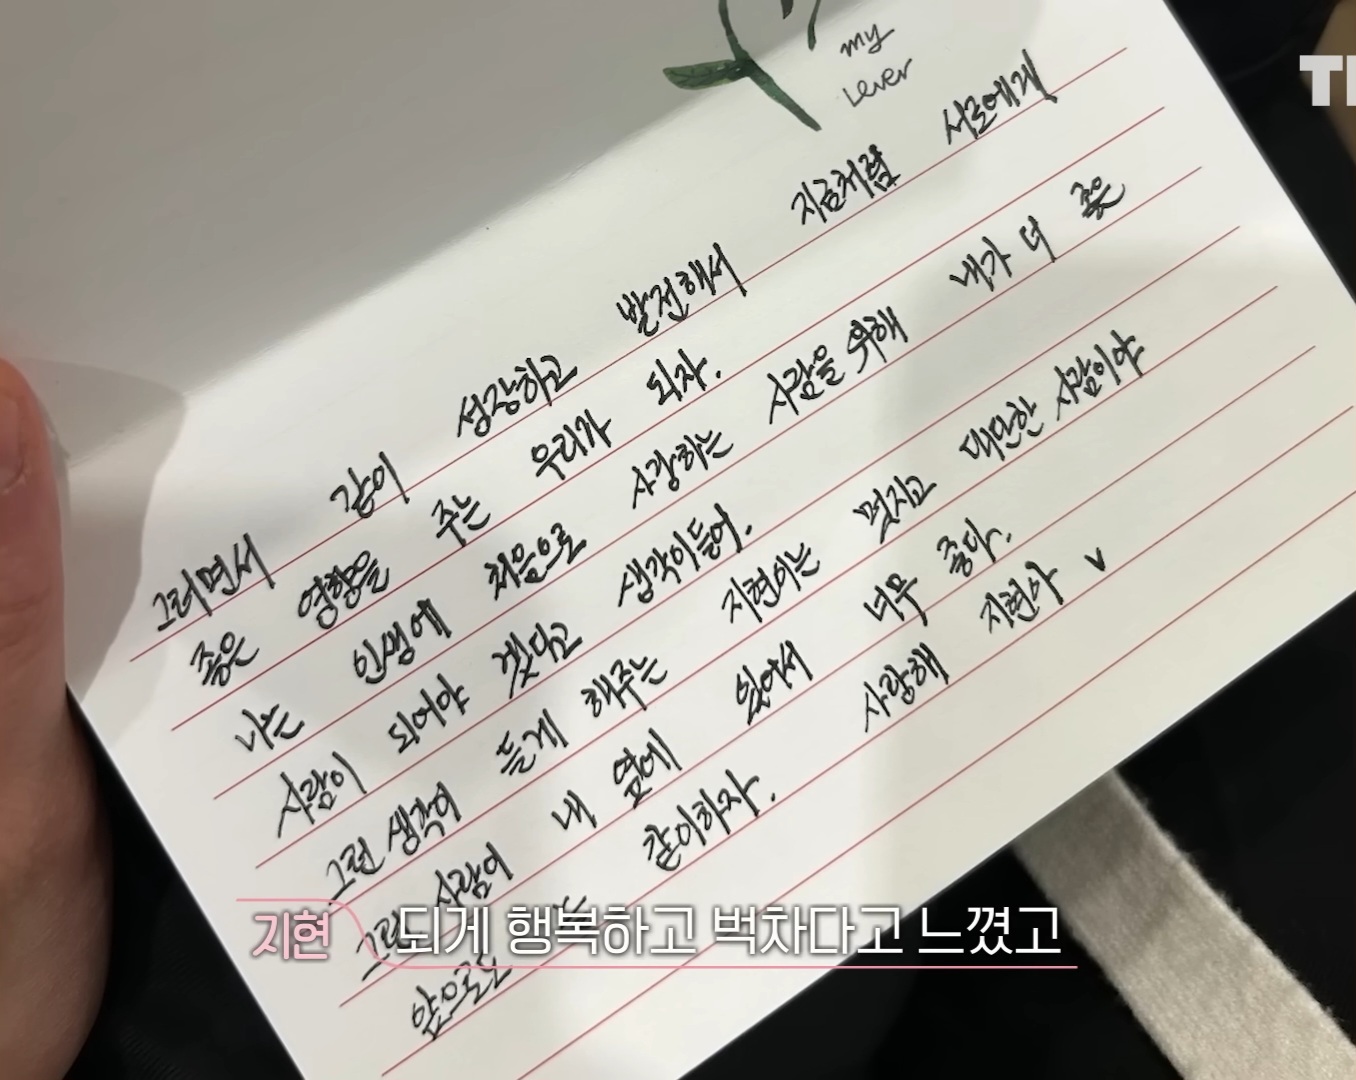 my
Lever
그러면서 같이 성장하고 발전해서 지금처럼 서로에게
좋은 영향을 주는 우리가 되자.
나는 인생에 처음으로 사랑하는 사람을 위해 내가 더 좋은
사람이 되어야 겠다고 생각이들어.
그런 생각이 들게 해주는 지현이는 멋지고 대단한 사람이야
그런 사람이 내 옆에 있어서 너무 좋다.
앞으로도 같이하자. 사랑해 지현아 v
지현 되게 행복하고 벅차다고 느꼈고